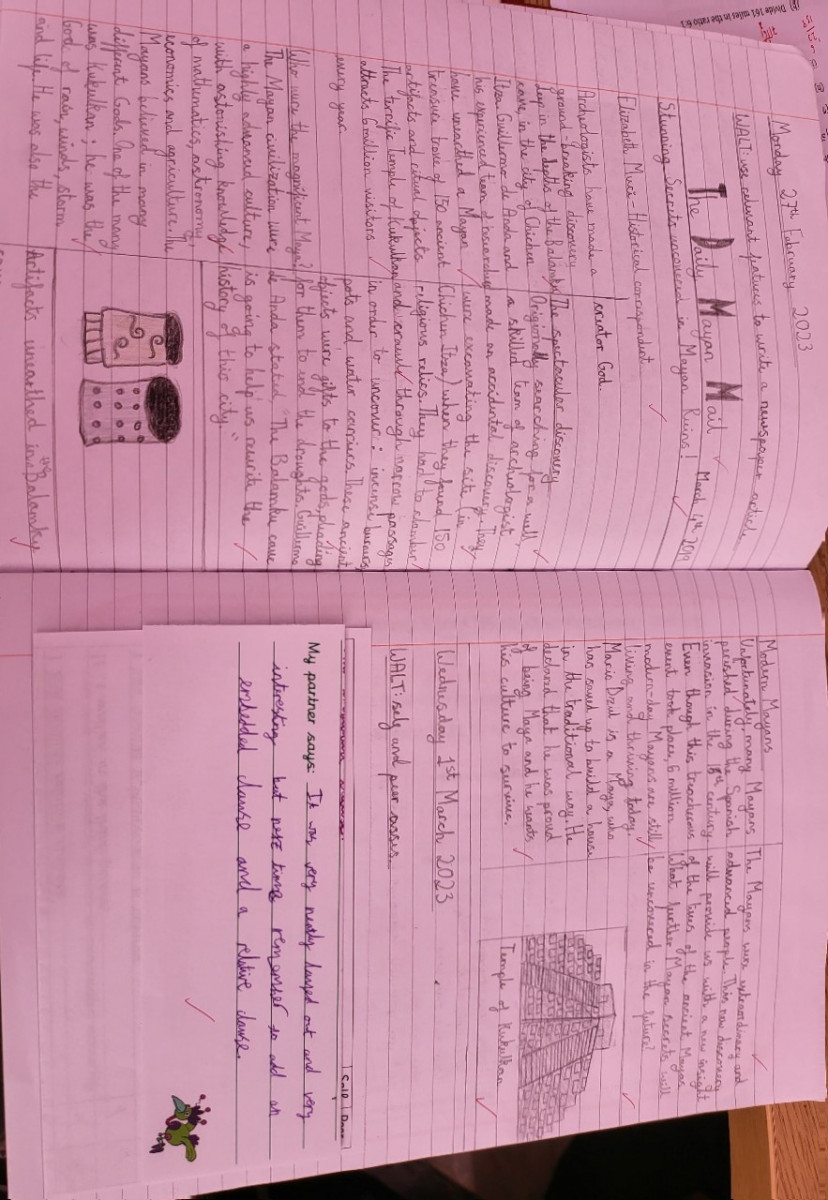 Monday 27th February 2023
WALT: use relevant features to write a newspaper article
The Daily Mayan Mail
March 4th, 2019
Stunning Secrets uncovered in Mayan Ruins!
Elizabeth Muca - Historical correspondent.
Archeologists have made a
ground-breaking discovery
deep in the depths of the Balamku
cave in the city of Chichen
Itza. Guillermo de Anda and
his experienced team of
have unearthed a Mayan
treasure trove of 150 ancient
artifacts and ritual objects.
The terrific Temple of Kukulkan
attracts 6 million visitors
every year.
Who were the magnificent Maya?
The Mayan civilization were
a highly advanced culture,
with astonishing knowledge
of mathematics, astronomy,
economics and agriculture. The
Mayans believed in many
different Gods. One of the many
was Kukulkan; he was the
God of rain, winds, storm
and life. He was also the
creator God.
The spectacular discovery
Origionally searching for a well,
a skilled team of archeologist
made an accidental discovery. They
were excavating the site (in
Chichen Itza) when they found 150
religious relics. They had to clamber
and crawl through narrow passages
in order to uncover: incense burners,
pots and water carriers. These ancient
objects were gifts to the gods, pleading
for them to end the droughts. Guillermo
de Anda stated "The Balamku cave
is going to help us rewrite the
history of this city."
Artifacts unearthed in the Balamku
Modern Mayans
Unfortunately, many Mayans
perished during the Spanish
invasion in the 16th century.
Even though this treacherous
event took place, 6 million
modern-day Mayans are still
living and thriving today.
Mario Dzul is a Maya, who
has saved up to build a house
in the traditional way. He
declared that he was proud
of being Maya and he wants
his culture to survive.
The Mayans were extraordinary and
advanced people. This new discovery
will provide us with a new insight
of the lives of the ancient Mayas.
What further Mayan secrets will
be uncovered in the future?
Temple of Kukulkan
Wednesday 1st March 2023
WALT: self and peer assess.
Self Peer
My partner says: It was very neatly layed out and very
interesting but next time remember to add an
embedded clause and a relative clause.
Divide 161 miles in the ratio 6:1